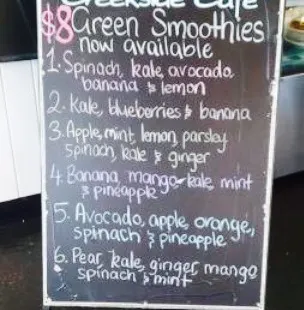 Creekside Cafe
$8 Green Smoothies
now available
1. Spinach, kale, avocado
banana & lemon
2. Kale, blueberries & banana
3. Apple, mint, lemon, parsley
spinach, kale & ginger
4. Banana, mango kale, mint
& pineapple
5. Avocado, apple, orange,
spinach & pineapple
6. Pear, kale, ginger, mango
spinach & mint